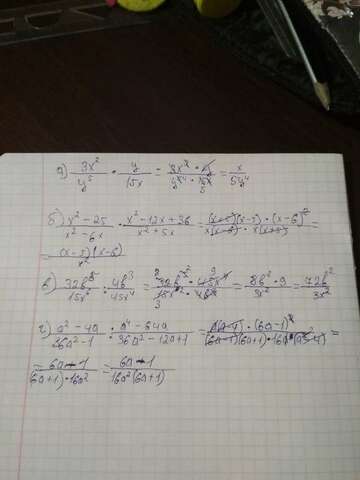 а) 3x²/y⁵ · y/15x = 3x² · y/y⁵ · 15x = x/5y⁴
б) x² - 25/x² - 6x · x² - 12x + 36/x² + 5x = (x+5)(x-5) · (x-6)²/x(x-6) · x(x+5) =
= (x-5)(x-6)/x²
в) 32b⁵/15x⁶ : 4b³/45x⁴ = 32b⁵ · 45x⁴/15x⁶ · 4b³ = 8b² · 3/x² = 72b²/3x²
г) a² - 4a/36a² - 1 : a⁴ - 64a/36a² - 12a + 1 = · (6a-1)²/(6a-1)(6a+1) ·
= 6a - 1/(6a+1) · 16a² = 6a - 1/16a²(6a+1)